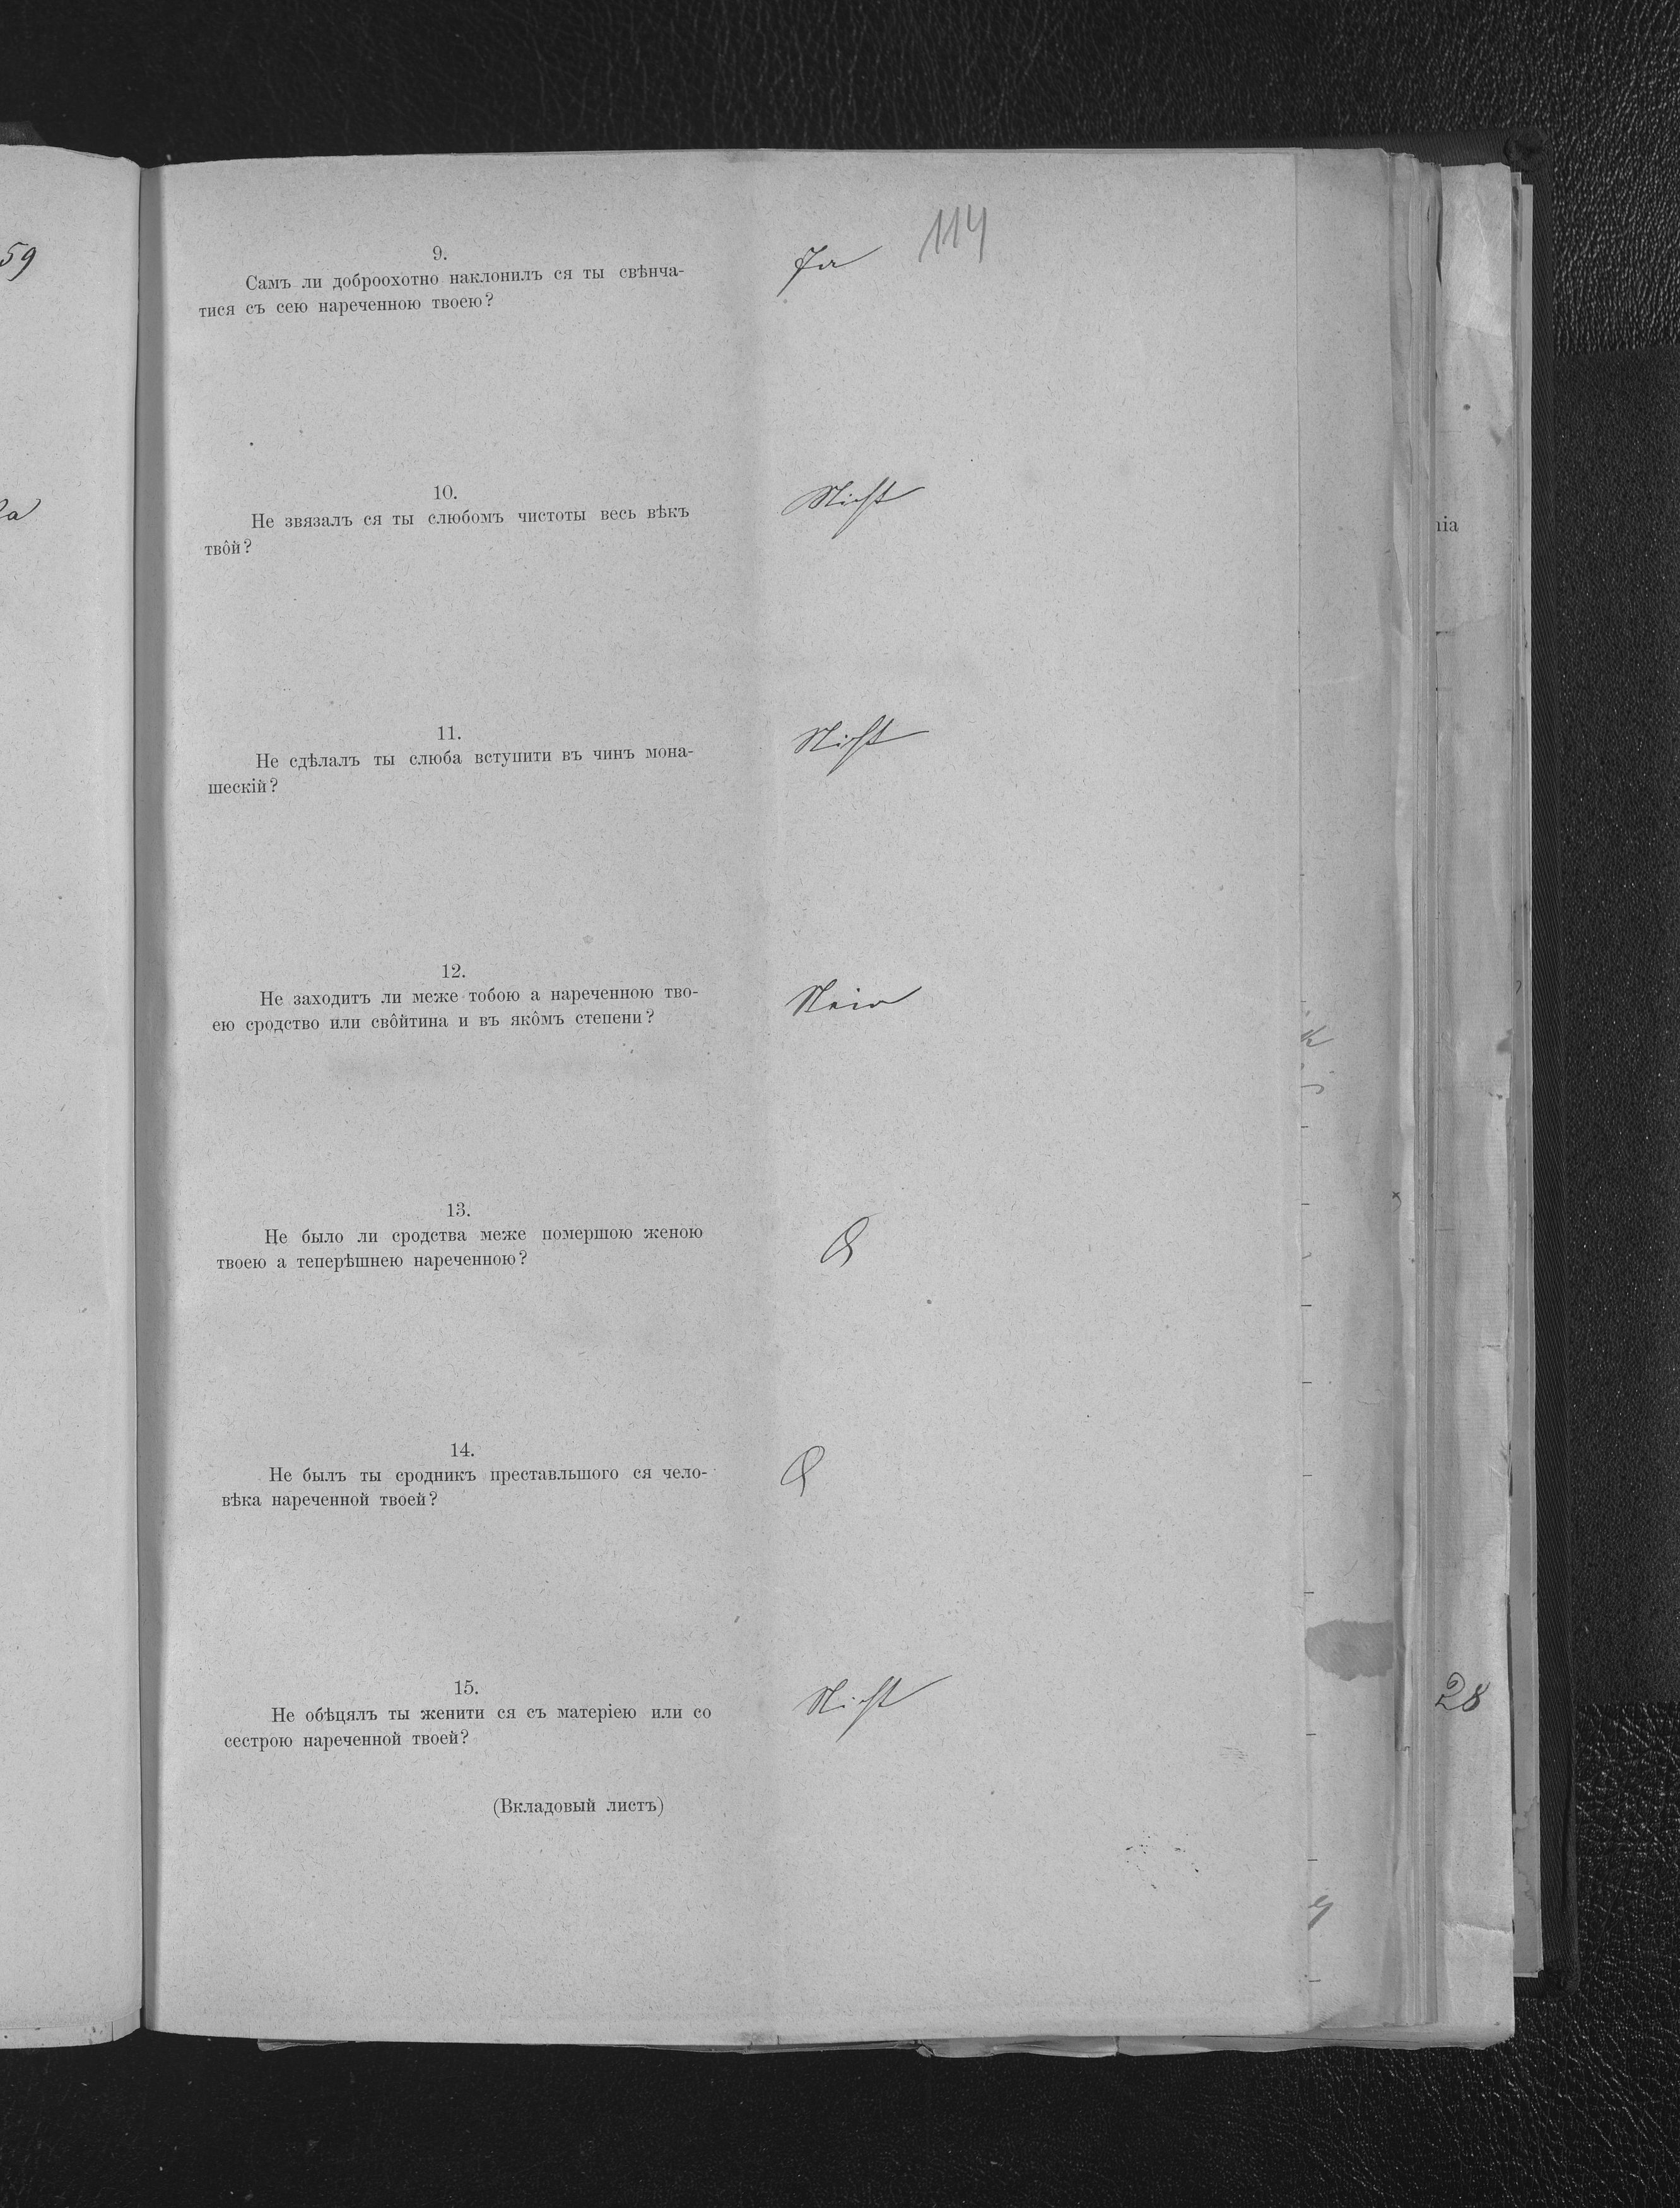 59
114
9.
Самъ ли доброохотно наклонилъ ся ты свѣнча-
тися съ сею нареченною твоею?
Ja
10.
Не звязалъ ся ты слюбомъ чистоты весь вѣкъ
твôй?
Nicht
11.
Не сдѣлалъ ты слюба вступити въ чинъ мона-
шескій?
Nicht
12.
Не заходитъ ли меже тобою а нареченною тво-
ею сродство или свôйтина и въ якôмъ степени?
Nein
13.
Не было ли сродства меже помершою женою
твоею а теперѣшнею нареченною?
14.
Не былъ ты сродникъ преставльшого ся чело-
вѣка нареченной твоей?
15.
Не обѣцялъ ты женити ся съ матеріею или со
сестрою нареченной твоей?
Nicht
(Вкладовый листъ)
nia
28